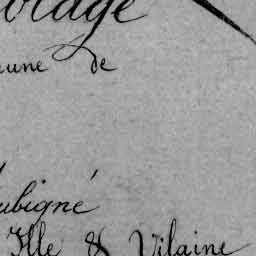 olage
une de
ubigné
Ille & Vilaine